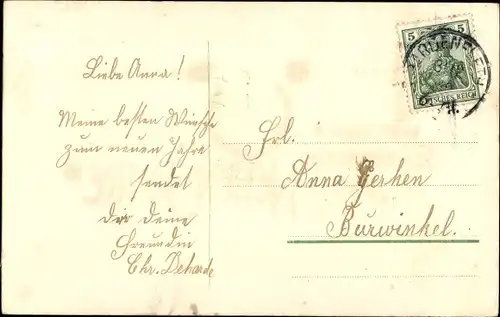 Liebe Anna!
Meine besten Wünsche
zum neuen Jahre
sendet
dir deine
Freundin
Chr. Deharde
5 5
DEUTSCHES REICH
Frl.
Anna Gerhen
Burwinkel.